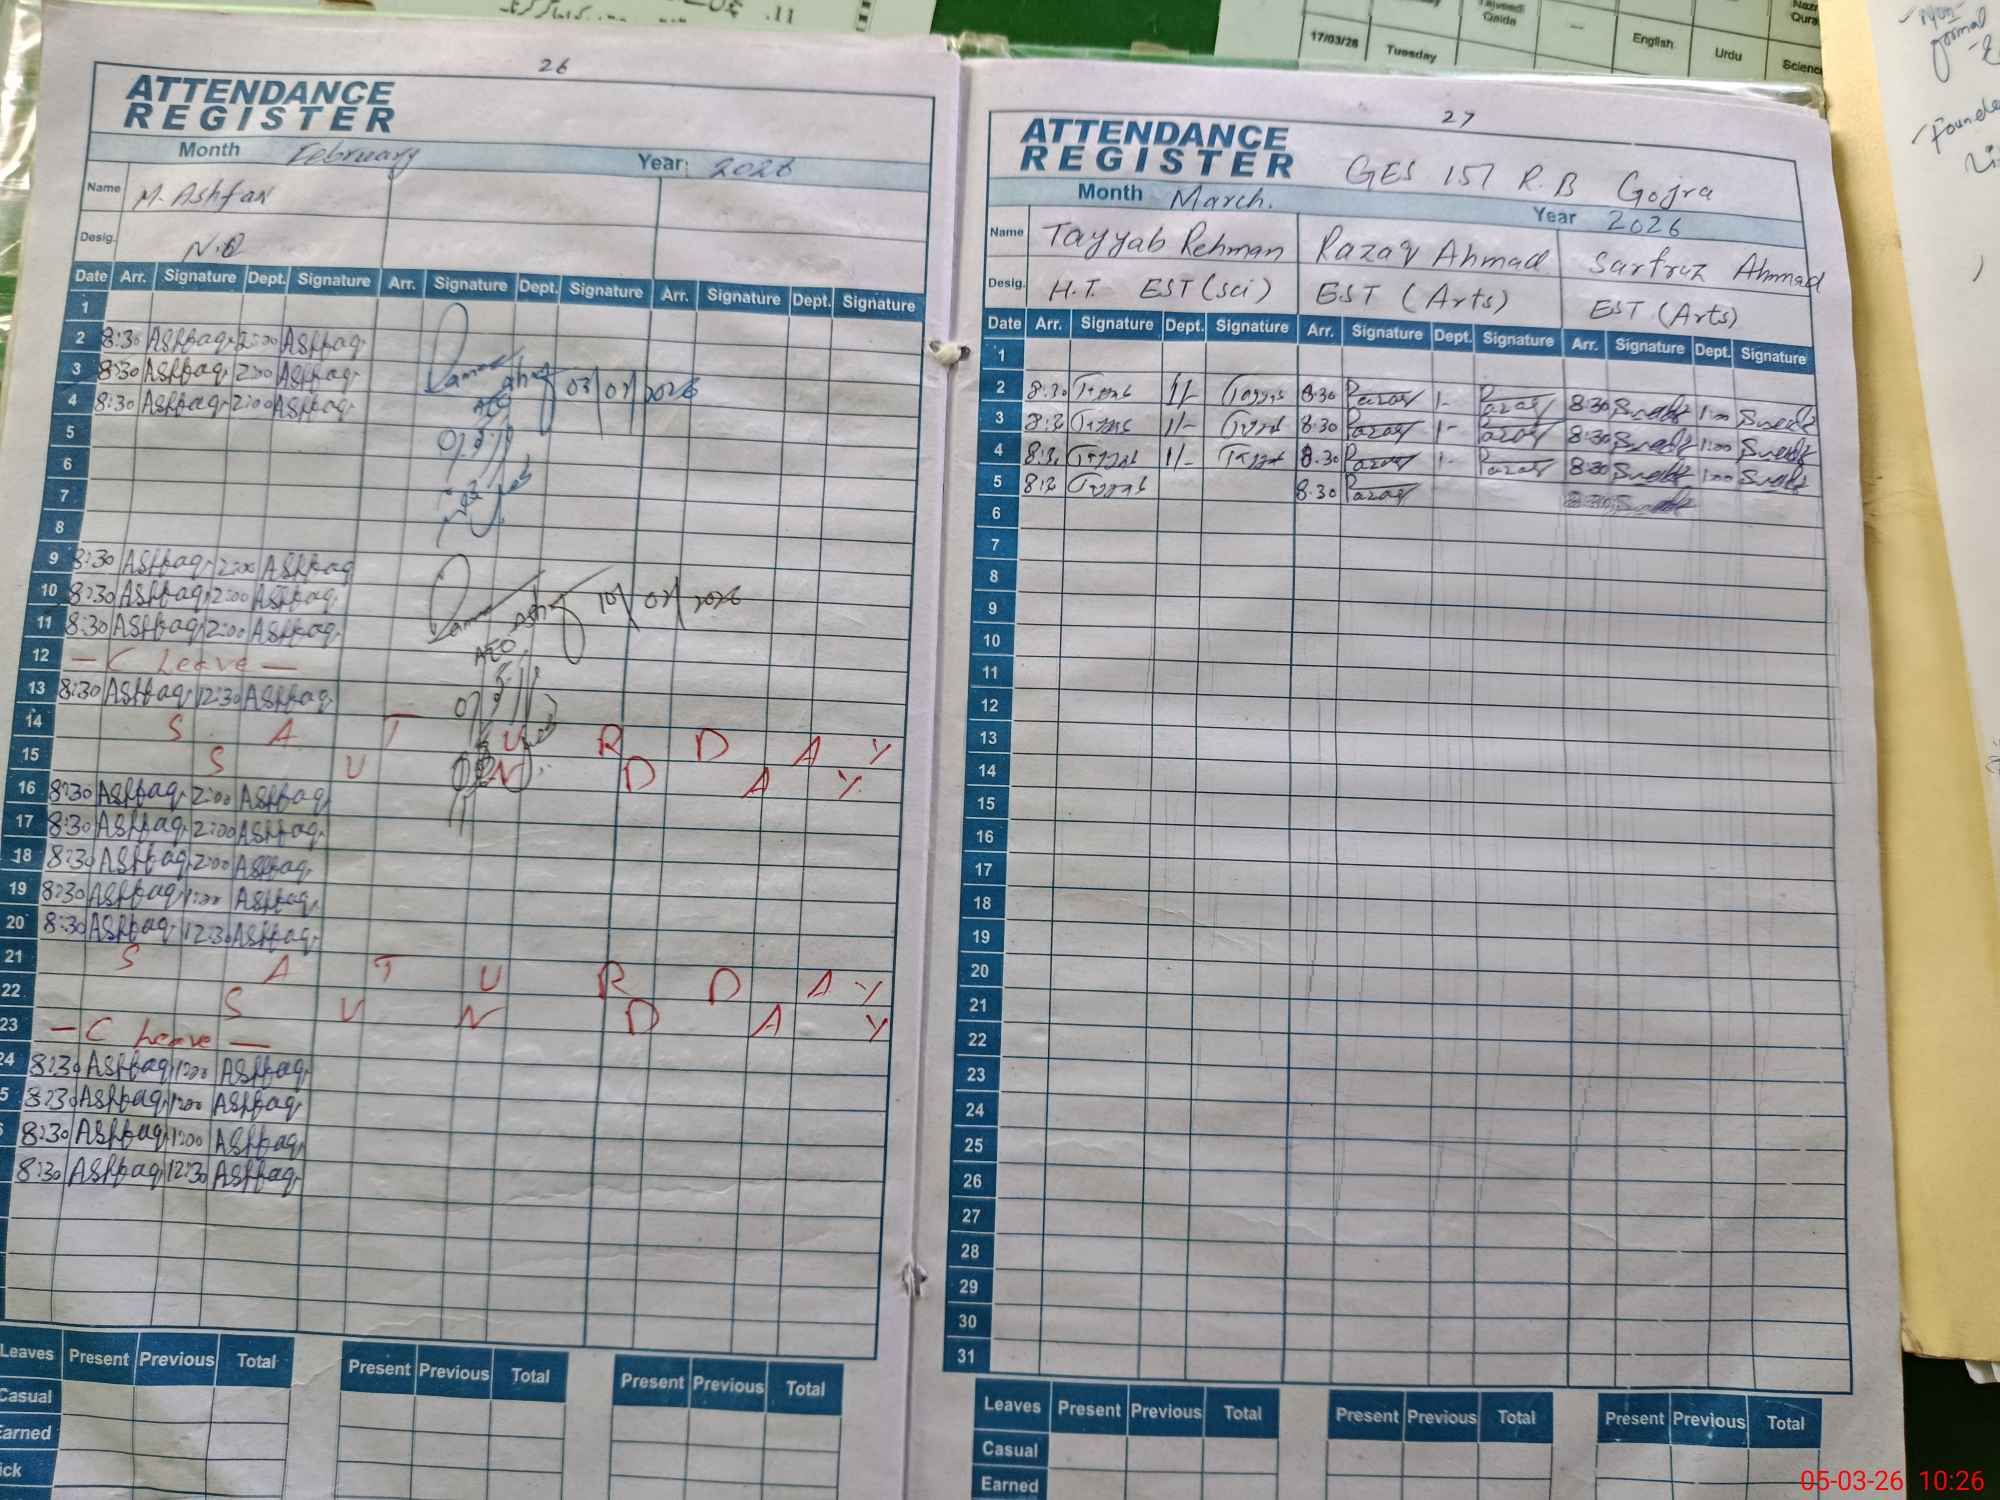 26
ATTENDANCE
REGISTER
Month February Year: 2026
Name M. Ashfaq
Desig. N.Q
Date Arr. Signature Dept. Signature Arr. Signature Dept. Signature Arr. Signature Dept. Signature
1
2 8:30 Ashfaq 2:00 Ashfaq
3 8:30 Ashfaq 2:00 Ashfaq
4 8:30 Ashfaq 2:00 Ashfaq
03/02/2026
AEO
5
6
7
8
9 8:30 Ashfaq 2:00 Ashfaq
10 8:30 Ashfaq 2:00 Ashfaq
10/02/2026
11 8:30 Ashfaq 2:00 Ashfaq
AEO
12 – C Leave –
13 8:30 Ashfaq 12:30 Ashfaq
14 S A T U R D A Y
15 S U N D A Y
16 8:30 Ashfaq 2:00 Ashfaq
17 8:30 Ashfaq 2:00 Ashfaq
18 8:30 Ashfaq 2:00 Ashfaq
19 8:30 Ashfaq 1:00 Ashfaq
20 8:30 Ashfaq 12:30 Ashfaq
21 S A T U R D A Y
22 S U N D A Y
23 – C Leave –
24 8:30 Ashfaq 1:00 Ashfaq
5 8:30 Ashfaq 1:00 Ashfaq
8:30 Ashfaq 1:00 Ashfaq
8:30 Ashfaq 12:30 Ashfaq
Leaves Present Previous Total Present Previous Total Present Previous Total
Casual
Earned
ick
27
ATTENDANCE
REGISTER GES 157 R.B Gojra
Month March. Year 2026
Name Tayyab Rehman Razaq Ahmad Sarfraz Ahmad
Desig. H.T. EST (sci) EST (Arts) EST (Arts)
Date Arr. Signature Dept. Signature Arr. Signature Dept. Signature Arr. Signature Dept. Signature
1
2 8:30 Tayyab 1/- Tayyab 8:30 Razaq 1- Razaq 8:30 1:00
3 8:30 Tayyab 1/- Tayyab 8:30 Razaq 1- Razaq 8:30 1:00
4 8:30 Tayyab 1/- Tayyab 8:30 Razaq 1- Razaq 8:30 1:00
5 8:30 Tayyab 8:30 Razaq
6
7
8
9
10
11
12
13
14
15
16
17
18
19
20
21
22
23
24
25
26
27
28
29
30
31
Leaves Present Previous Total Present Previous Total Present Previous Total
Casual
Earned
17/03/26 Tuesday Qaida — English Urdu
05-03-26 10:26